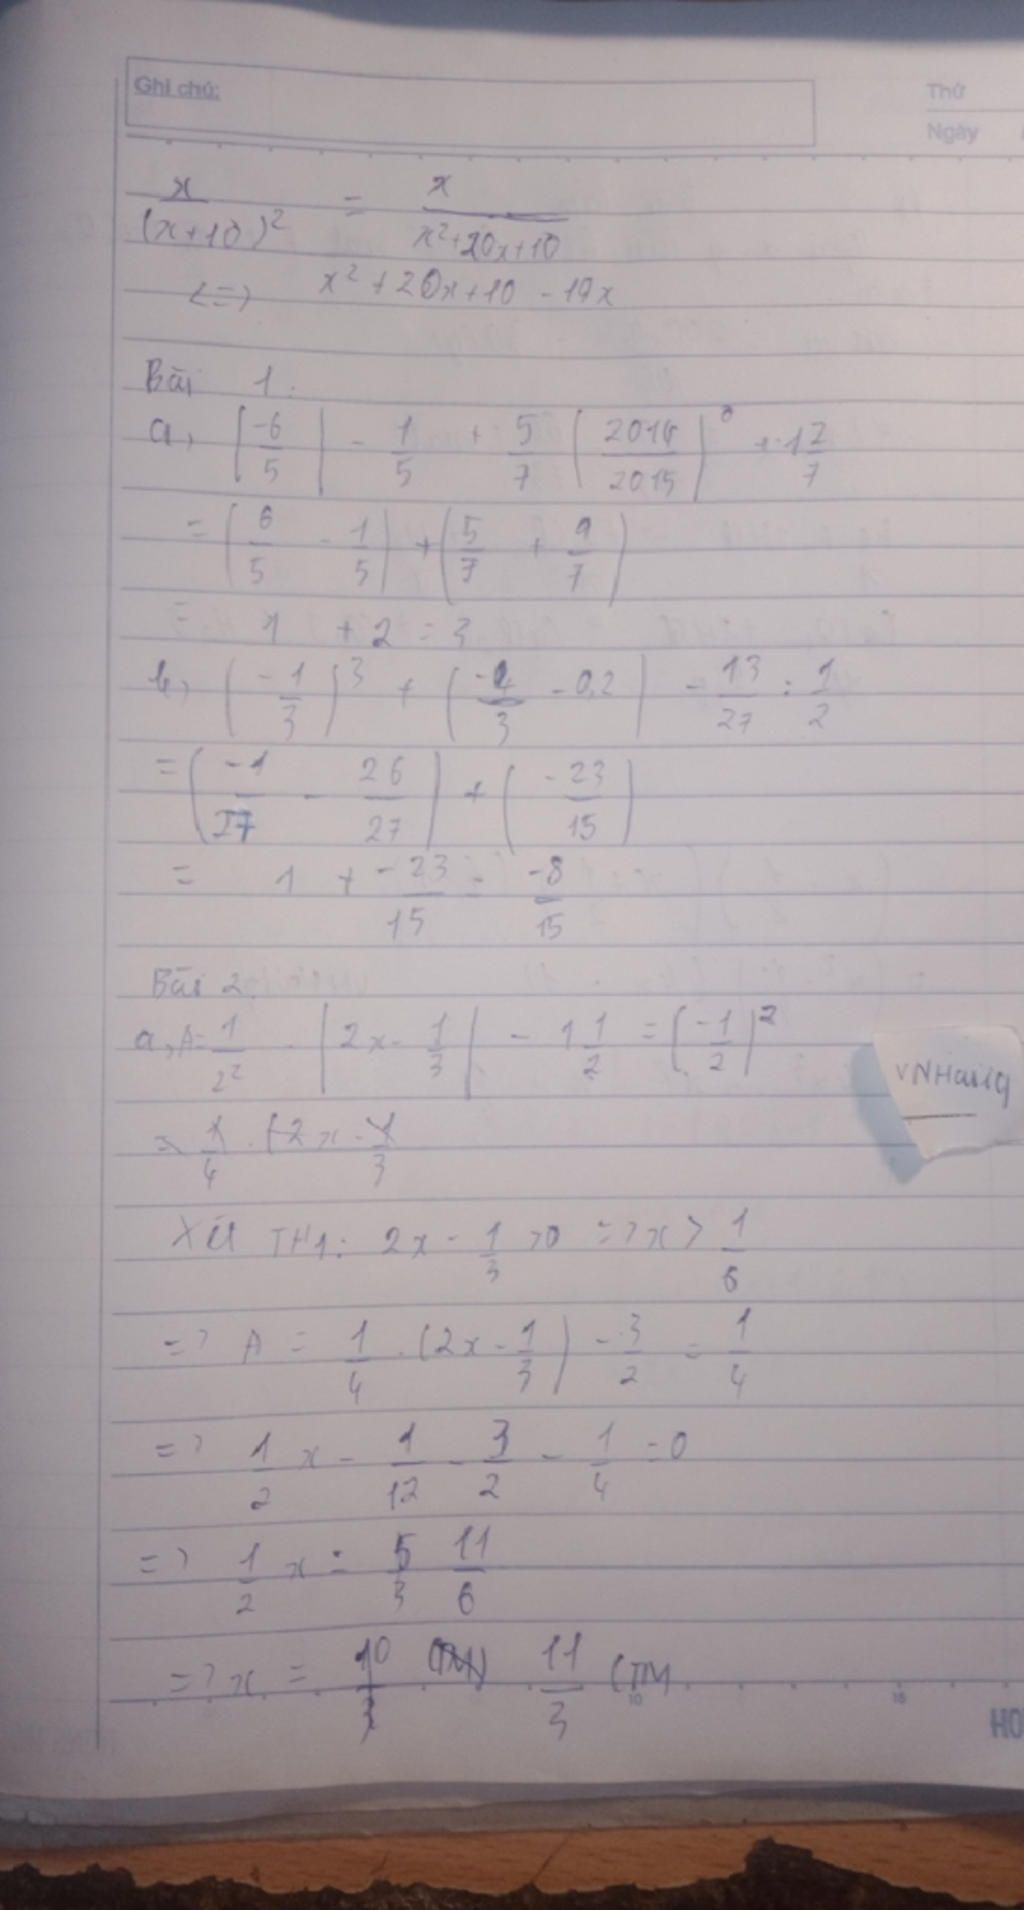 Ghi chú:
Thứ
Ngày
x/(x+10)² = x/(x²+20x+10)
<=> x²+20x+10 - 19x
Bài 1.
a, |-6/5| - 1/5 + 5/7 (2014/2015)⁰ + 1 2/7
= (6/5 - 1/5) + (5/7 + 9/7)
= 1 + 2 = 3
b, (-1/3)³ + (-4/3 - 0,2) - 13/27 : 1/2
= (-1/27 - 26/27) + (-23/15)
= 1 + -23/15 = -8/15
Bài 2.
a, A = 1/2² . |2x - 1/3| - 1 1/2 = (-1/2)²
VNHang
Xét TH1: 2x - 1/3 >0 => x > 1/6
=> A = 1/4 . (2x - 1/3) - 3/2 = 1/4
=> 1/2 x - 1/12 - 3/2 - 1/4 = 0
=> 1/2 x = 5/3 11/6
=> x = 10/3 (TM) 11/3 (TM
10 15
HO